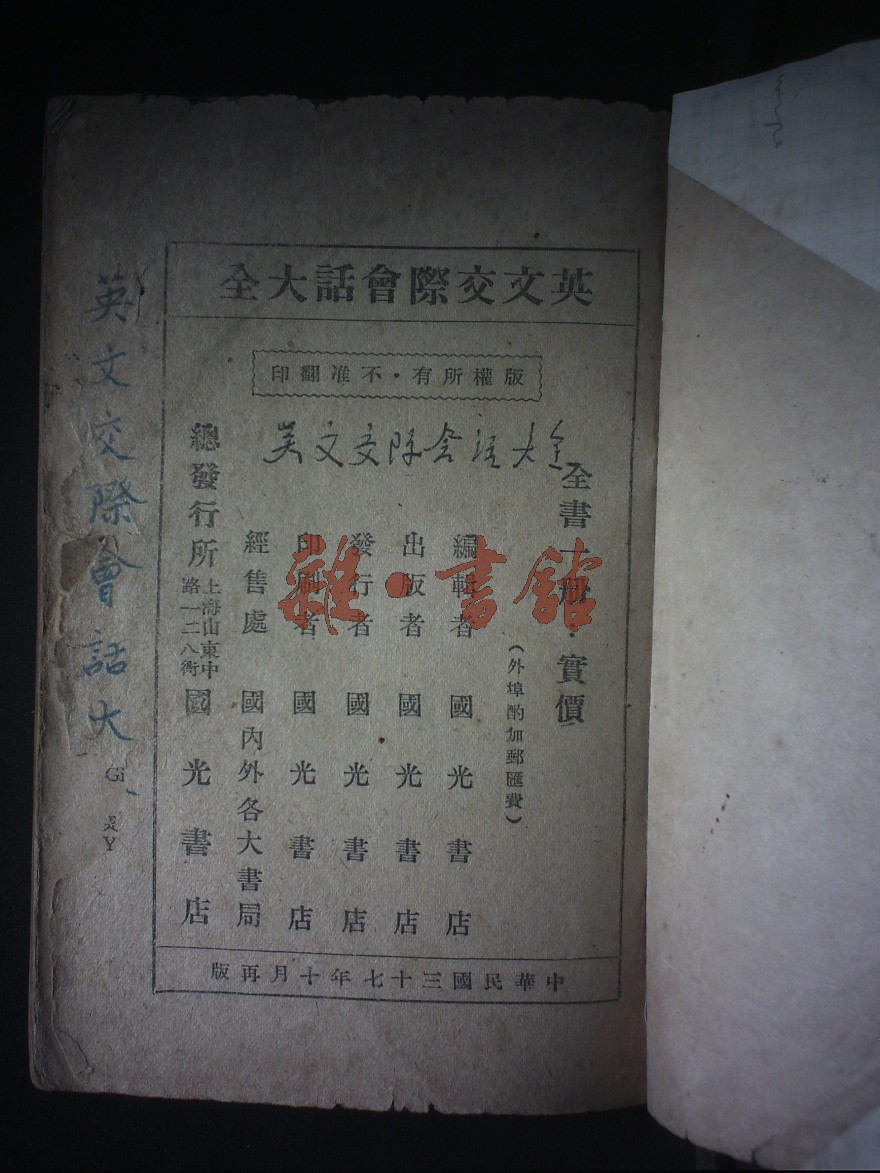 英文交際會話大全
版權所有·不准翻印
英文交际会话大全
全書一册·實價
(外埠酌加郵匯費)
編輯者 國光書店
出版者 國光書店
發行者 國光書店
印刷者 國光書店
經售處 國內外各大書局
總發行所 上海山東中路一二八衖 國光書店
中華民國三十七年十月再版
英文交際會話大
Gi
Y
雜·書館